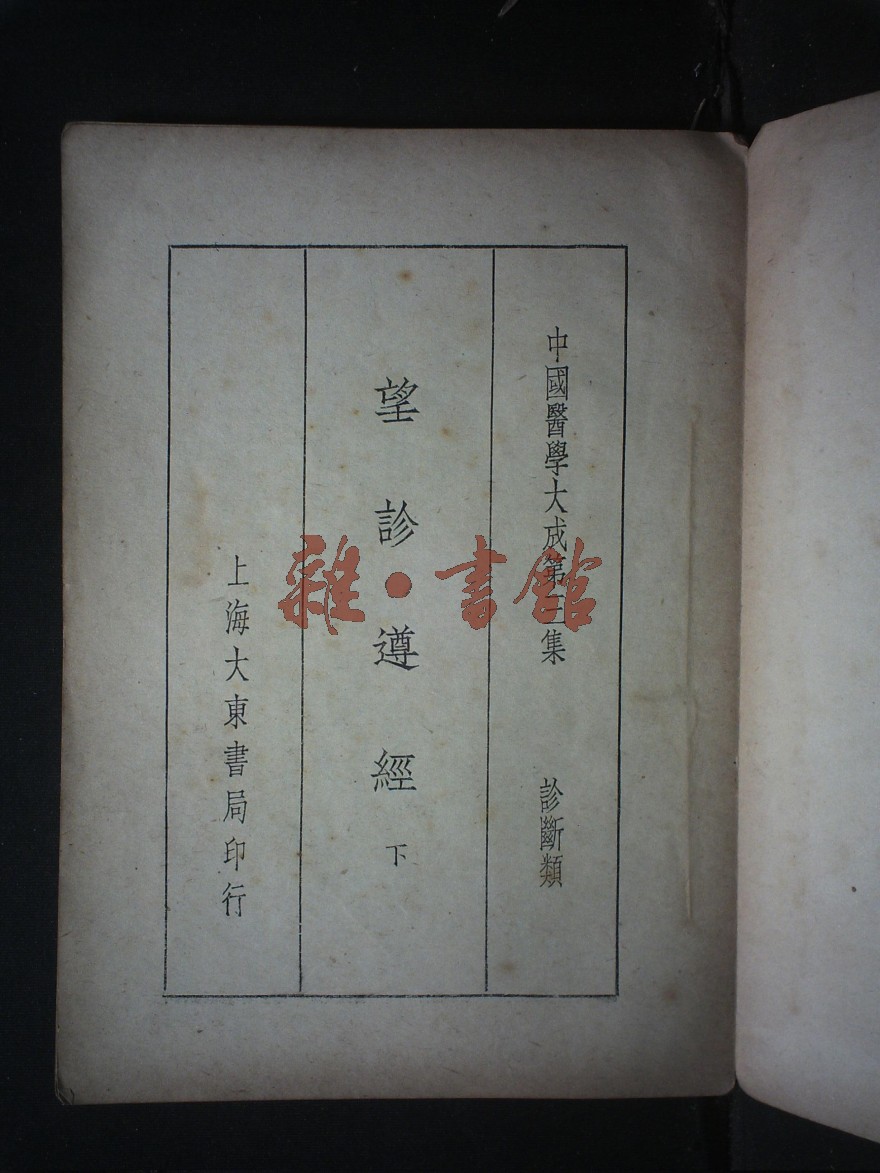 中國醫學大成第三集 診斷類
望診遵經 下
上海大東書局印行
雜·書館